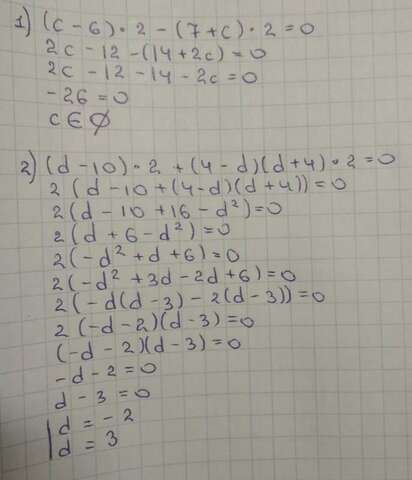 1) (c - 6) · 2 - (7 + c) · 2 = 0
2c - 12 - (14 + 2c) = 0
2c - 12 - 14 - 2c = 0
- 26 = 0
c ∈ ∅
2) (d - 10) · 2 + (4 - d)(d + 4) · 2 = 0
2 (d - 10 + (4 - d)(d + 4)) = 0
2 (d - 10 + 16 - d²) = 0
2 (d + 6 - d²) = 0
2 (- d² + d + 6) = 0
2 (- d² + 3d - 2d + 6) = 0
2 (- d(d - 3) - 2(d - 3)) = 0
2 (- d - 2)(d - 3) = 0
(- d - 2)(d - 3) = 0
- d - 2 = 0
d - 3 = 0
d = - 2
d = 3